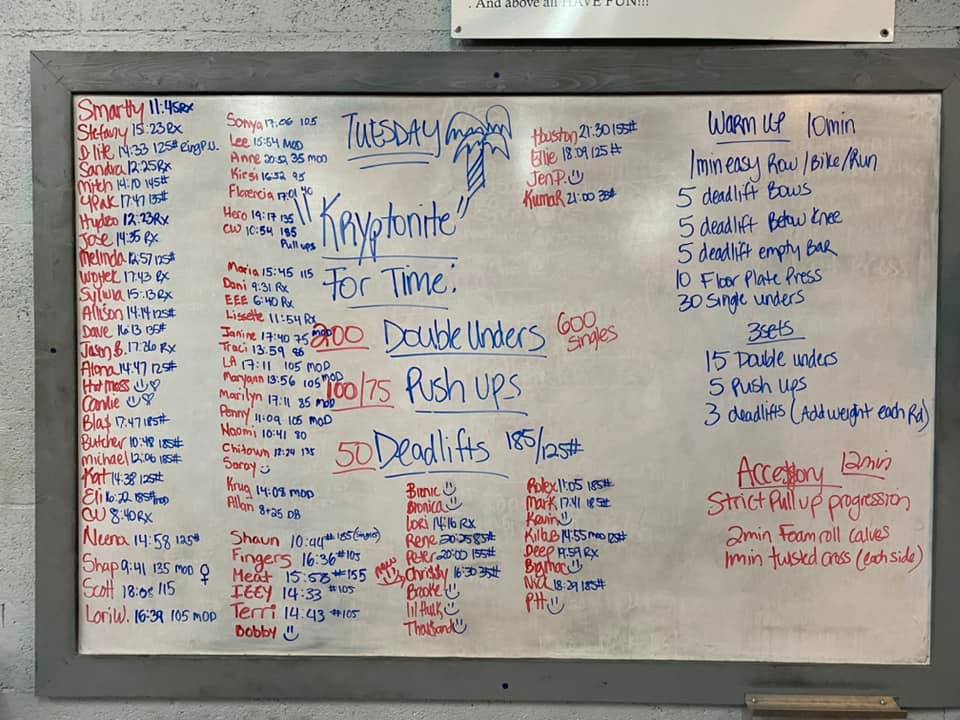 . And above all HAVE FUN!!!
Smartty 11:45RX
Stefany 15:23RX
D lite 14:33 125# Ring P.U.
Sandra 12:25RX
Mitch 14:10 145#
4PAK 17:47 135#
Hydeo 12:23RX
Jose 14:35 RX
Melinda 12:57 125#
Wojtek 17:43 RX
Sylwia 15:13RX
Allison 14:14 125#
Dave 16:13 135#
Jason B. 17:26 RX
Alana 14:47 125#
Hot Mess
Candie
Bla$ 17:47 185#
Butcher 10:48 185#
michael 12:06 185#
Kat 14:38 125#
Eli 16:22 185# mod
CW 8:40RX
Neena 14:58 125#
Shap 9:41 135 MOD ♀
Scott 18:08 115
Lori W. 16:39 105 MOD
Sonya 17:06 105
Lee 15:54 MOD
Anne 20:52, 35 MOD
Kirsi 16:52 95
Florencia 17:01 40
Hero 19:17 135
CW 10:54 185
Pull ups
Maria 15:45 115
Dani 9:31 RX
EEE 6:40 RX
Lissette 11:54 RX
Janine 17:40 75 MOD
Traci 13:59
LA 17:11 105 MOD
Maryann 13:56 105 MOD
Marilyn 17:11 85 MOD
Penny 11:09 105 MOD
Naomi 10:41 80
Chitown 18:24 135
Soray
Krug 14:08 MOD
Allan 8+25 DB
Shaun 10:44 #185
Fingers 16:36 #105
Meat 15:58 #155
IGGY 14:33 #105
Terri 14:43 #105
Bobby
TUESDAY
"Kryptonite"
For Time:
200 Double Unders 600 Singles
100/75 Push ups
50 Deadlifts 185/125#
Bionic
Bronica
Lori 14:16 RX
Rene 20:25 85#
Peter 20:00 155#
new
Christy 16:30 35#
Brooke
lil Hulk
Thousand
Rolex 11:05 185#
Mark 17:41 185#
Kevin
Kilo B 14:55 MOD 125#
Deep 19:59 RX
Big Mac
Nick 18:29 185#
P.H
Houston 21:30 155#
Ellie 18:09 125#
Jen P.
Kumar 21:00 35#
WARM UP 10min
1min easy Row/Bike/Run
5 deadlift Bows
5 deadlift Below Knee
5 deadlift empty BAR
10 Floor Plate Press
30 Single unders
3 sets
15 Double unders
5 Push ups
3 deadlifts (Add weight each Rd)
Acce$$ory 12min
Strict Pull up progression
2min Foam roll calves
1min twisted cross (each side)